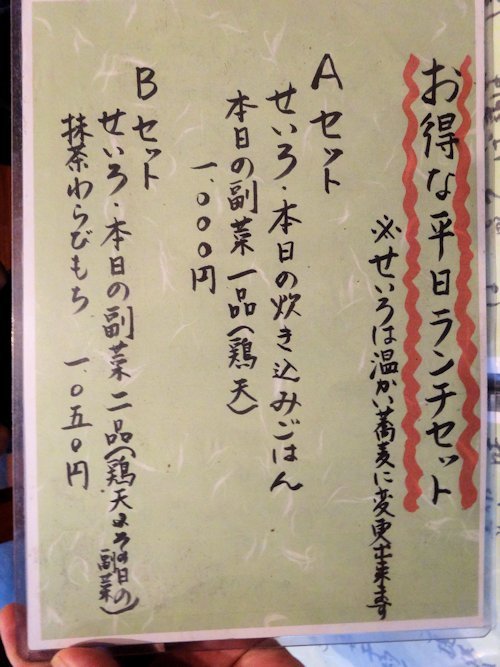 お得な平日ランチセット
※せいろは温かい蕎麦に変更出来ます
Aセット
せいろ・本日の炊き込みごはん
本日の副菜一品(鶏天)
一、〇〇〇円
Bセット
せいろ・本日の副菜二品(鶏天とその日の
副菜)
抹茶わらびもち 一、〇五〇円